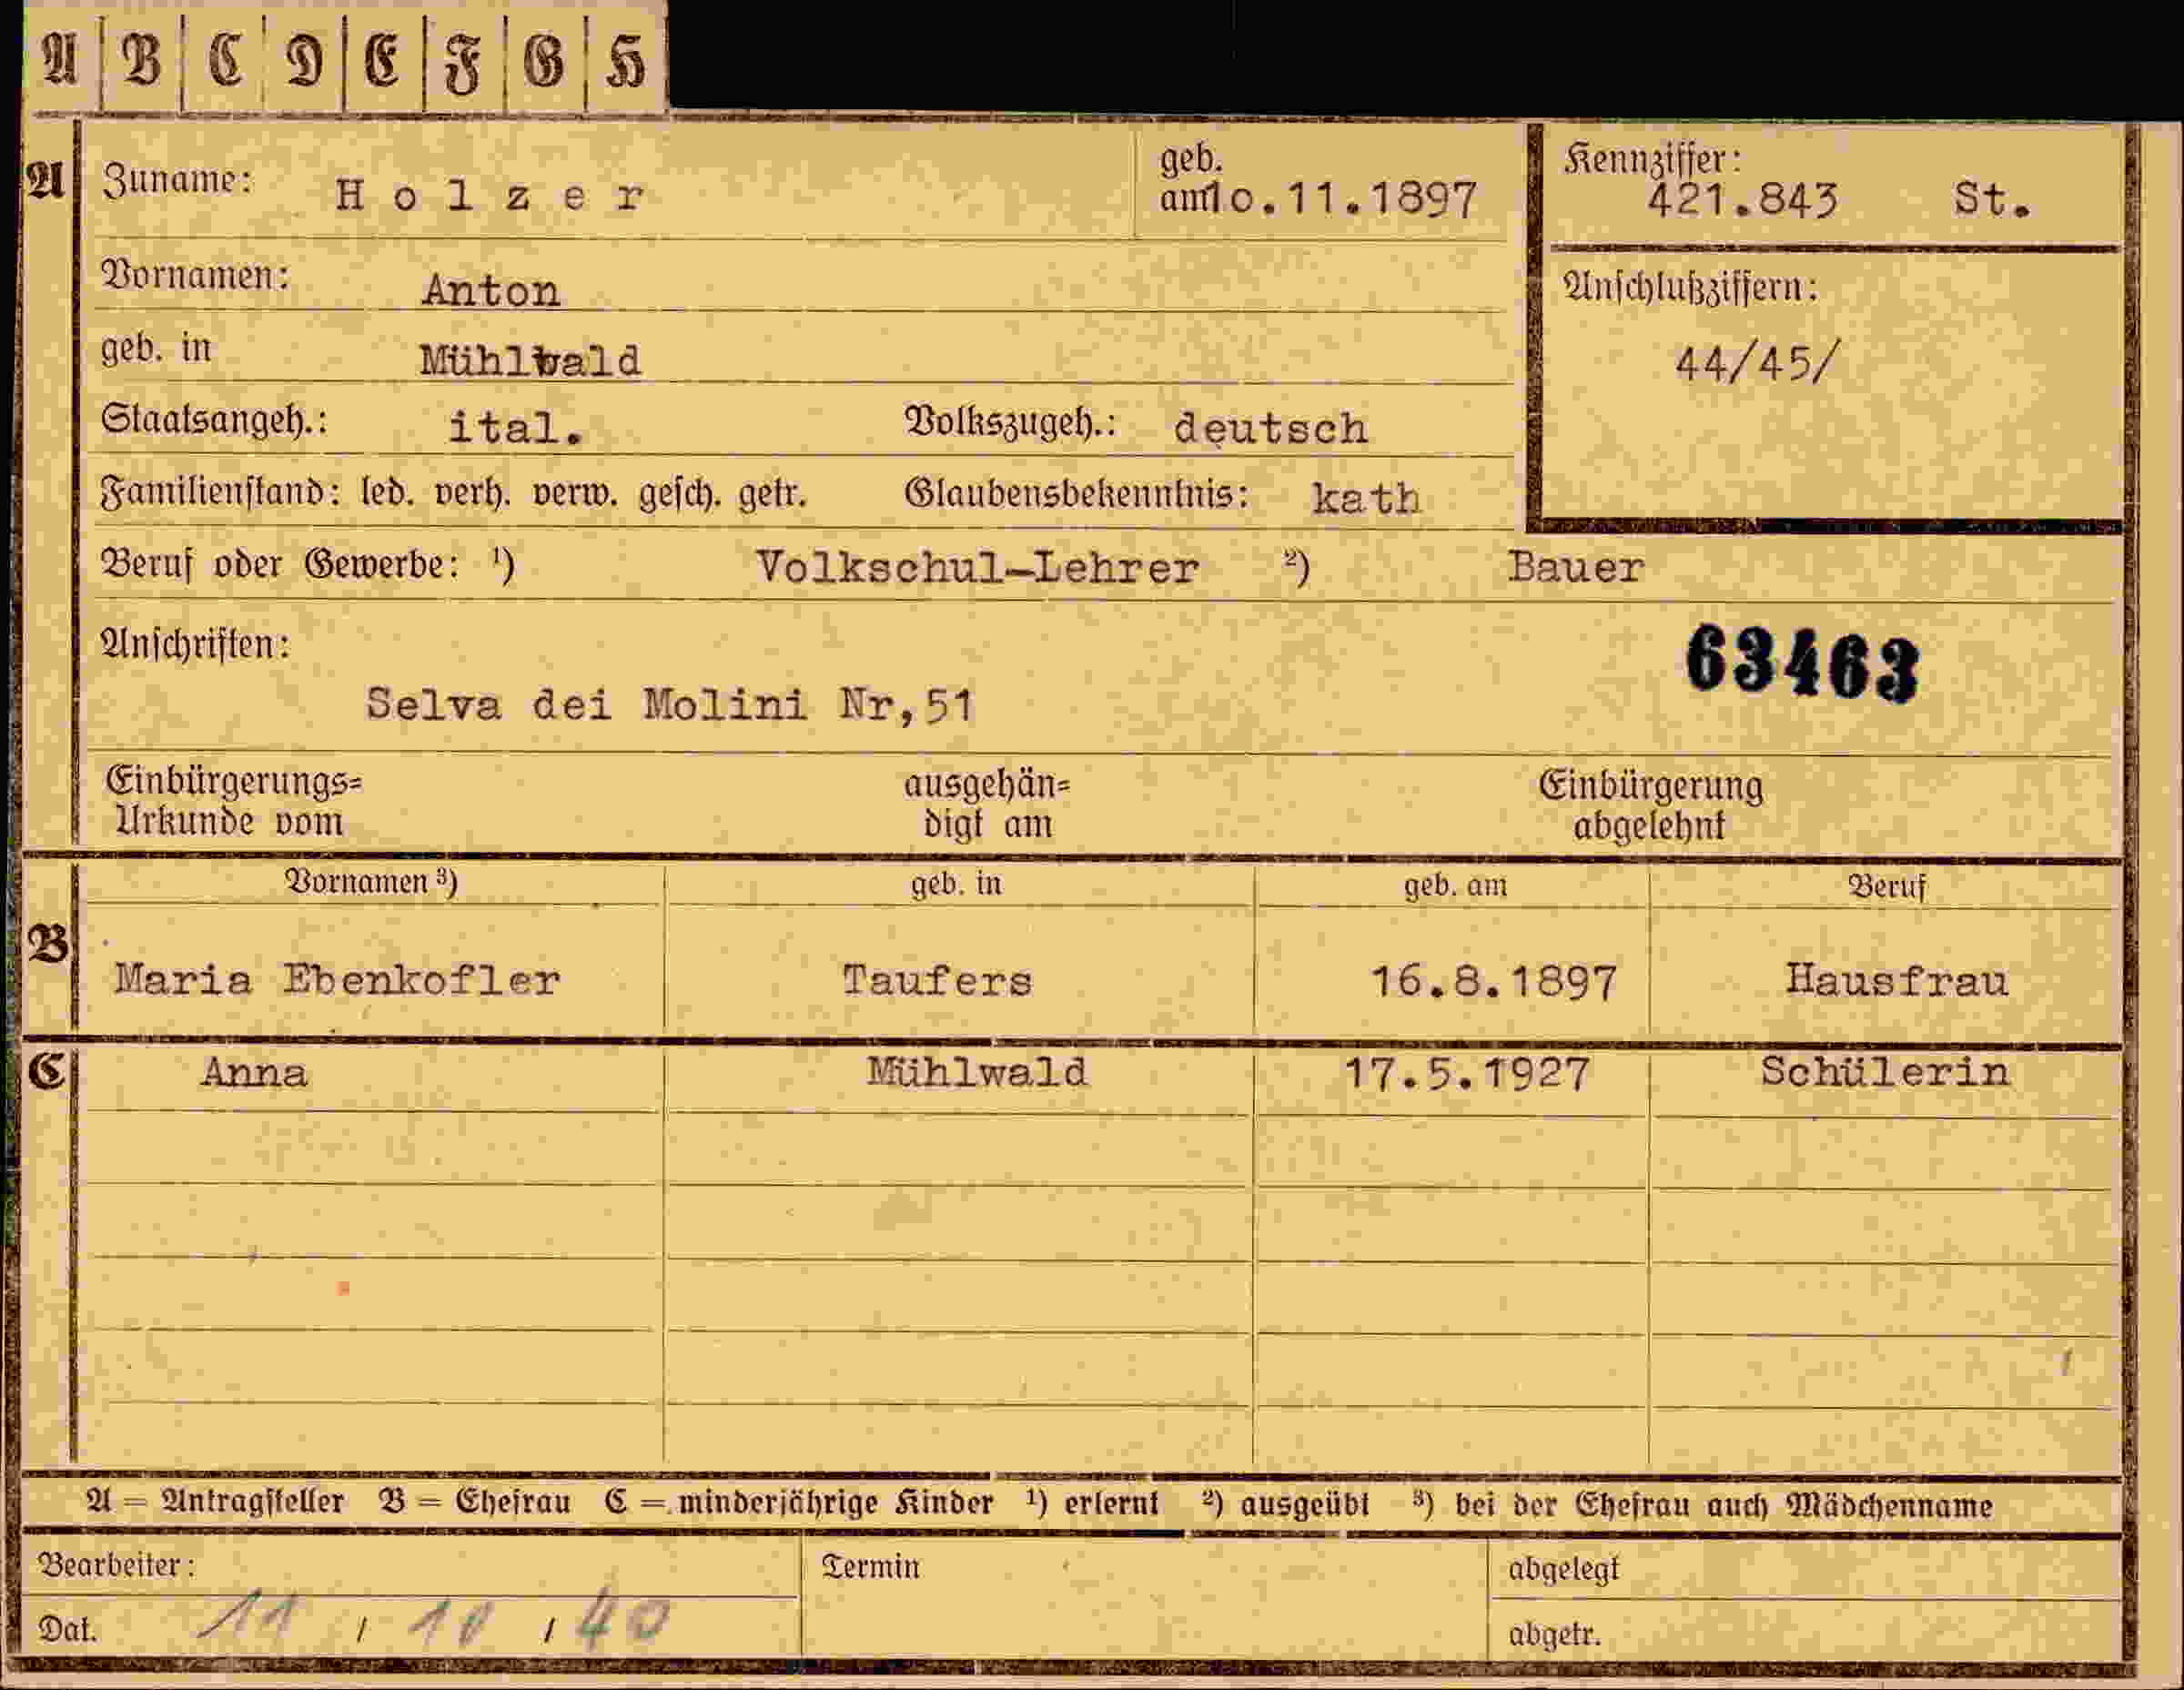 A B C D E F G H
A Zuname: Holzer geb. am 10.11.1897 Kennziffer: 421.843 St.
Vornamen: Anton Anschlußziffern:
geb. in Mühlwald 44/45/
Staatsangeh.: ital. Volkszugeh.: deutsch
Familienstand: led. verh. verw. gesch. getr. Glaubensbekenntnis: kath
Beruf oder Gewerbe: ¹) Volkschul-Lehrer ²) Bauer
Anschriften: 63463
Selva dei Molini Nr,51
Einbürgerungs= ausgehän= Einbürgerung
Urkunde vom digt am abgelehnt
B Vornamen ³) geb. in geb. am Beruf
Maria Ebenkofler Taufers 16.8.1897 Hausfrau
C Anna Mühlwald 17.5.1927 Schülerin
A = Antragsteller B = Ehefrau C = minderjährige Kinder ¹) erlernt ²) ausgeübt ³) bei der Ehefrau auch Mädchenname
Bearbeiter: Termin abgelegt
Dat. 11 / 10 / 40 abgetr.